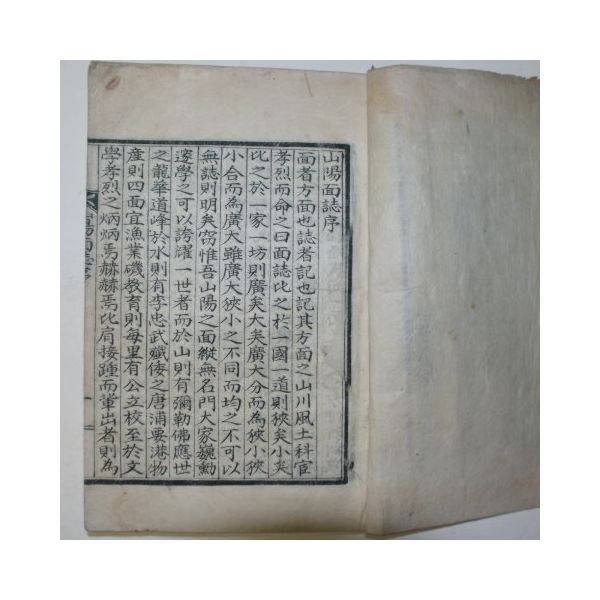 山陽面誌序
面者方面也誌者記也記其方面之山川風土科宦
孝烈而命之曰面誌比之於一國一道則狹矣小矣
比之於一家一坊則廣矣大矣廣大分而為狹小狹
小合而為廣大雖廣大狹小之不同而均之不可以
無誌則明矣窃惟吾山陽之面縱無名門大家巍勳
邃學之可以誇耀一世者而於山則有彌勒佛應世
之龍華道峰於水則有李忠武殲倭之唐浦要港物
産則四面宜漁業磯教育則每里有公立校至於文
學孝烈之炳炳焉赫赫焉比肩接踵而輩出者則為
山陽面誌序